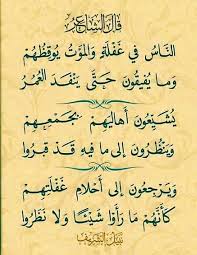 قَالَ الشَّاعِر
النَّاسُ فِي غَفْلَةٍ وَالْمَوْتُ يُوقِظُهُمْ
وَمَا يُفِيقُونَ حَتَّى يَنْفَدَ الْعُمُرُ
يُشَيِّعُونَ أَهَالِيهِمْ بِجَمْعِهِمْ
وَيَنْظُرُونَ إِلَى مَا فِيهِ قَدْ قُبِرُوا
وَيَرْجِعُونَ إِلَى أَحْلَامِ غَفْلَتِهِمْ
كَأَنَّهُمْ مَا رَأَوْا شَيْئًا وَلَا نَظَرُوا
نبيل الشريف